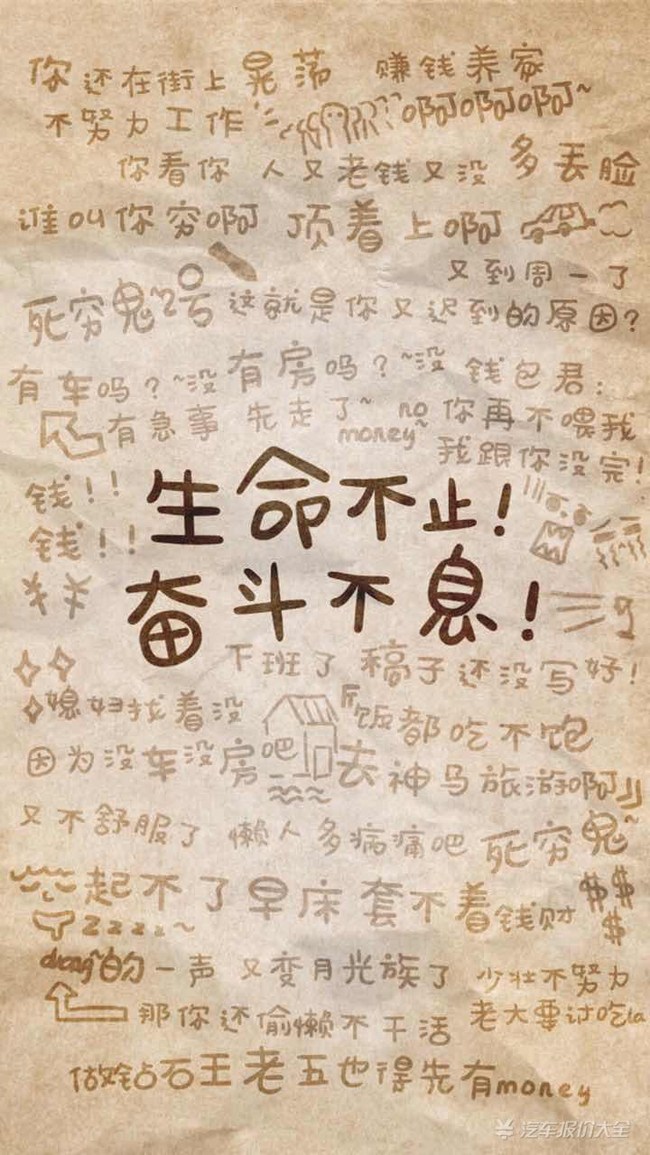 你还在街上晃荡 赚钱养家
不努力工作 啊啊啊~
你看你 人又老钱又没 多丢脸
谁叫你穷啊 顶着上啊
又到周一了
死穷鬼~2号 这就是你又迟到的原因?
有车吗?~没 有房吗?~没 钱包君:
有急事 先走了~ no money~ 你再不喂我
我跟你没完!
钱!!
钱!!
生命不止!
奋斗不息!
下班了 稿子还没写好!
媳妇找着没 饭都吃不饱
因为没车没房吧 去神马旅游啊
又不舒服了 懒人多病痛吧 死穷鬼~
起不了早床套不着钱财 $$$$
zzzz~
的一声 又变月光族了 少壮不努力
那你还偷懒不干活 老大要讨吃la
做钻石王老五也得先有money
汽车报价大全